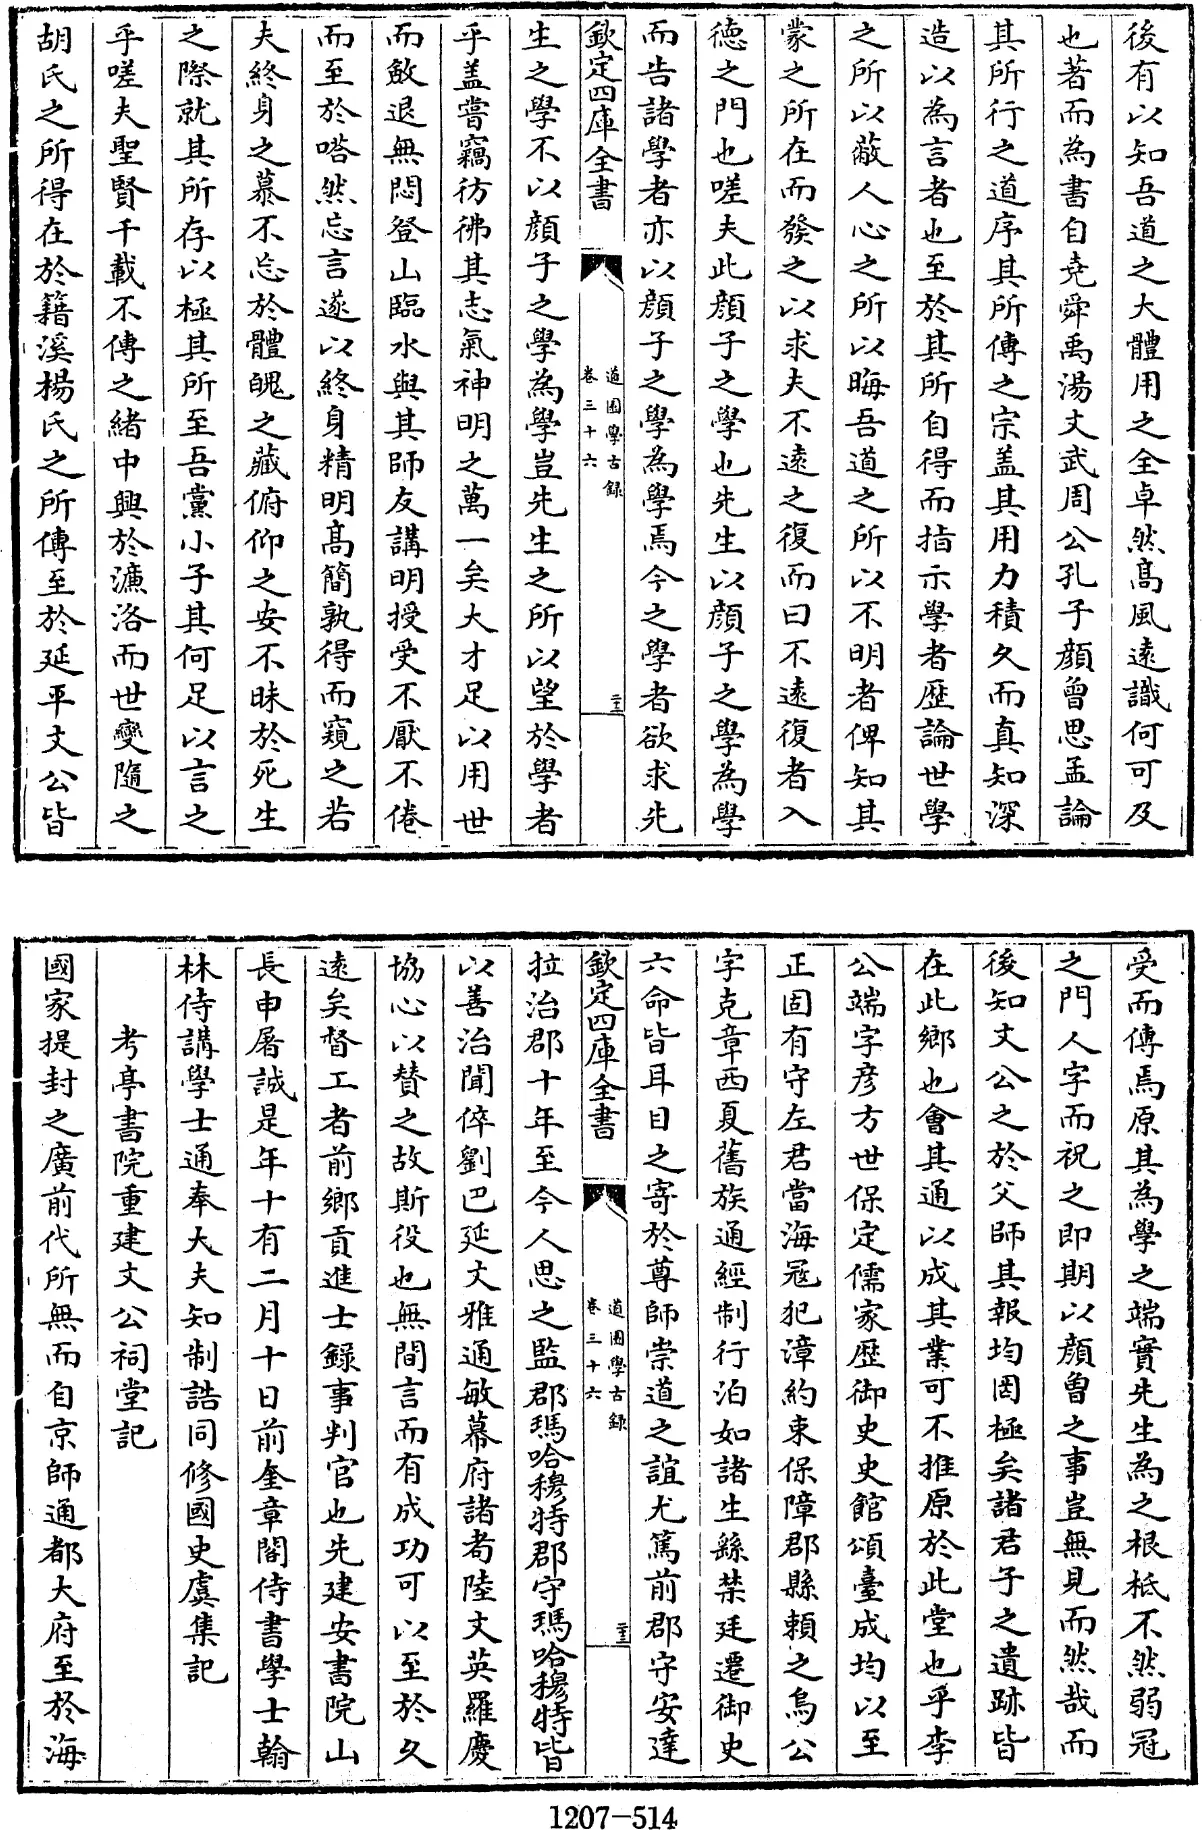 後有以知吾道之大體用之全卓然髙風逺識何可及
也著而為書自堯舜禹湯文武周公孔子顔曾思孟論
其所行之道序其所傳之宗盖其用力積久而真知深
造以為言者也至於其所自得而指示學者歴論世學
之所以蔽人心之所以晦吾道之所以不明者俾知其
蒙之所在而發之以求夫不逺之復而曰不逺復者入
徳之門也嗟夫此顔子之學也先生以顔子之學為學
而告諸學者亦以顔子之學為學焉今之學者欲求先
欽定四庫全書
道園學古録
卷三十六
生之學不以顔子之學為學豈先生之所以望於學者
乎盖嘗竊彷彿其志氣神明之萬一矣大才足以用世
而斂退無悶登山臨水與其師友講明授受不厭不倦
而至於嗒然忘言遂以終身精明髙簡孰得而窺之若
夫終身之慕不忘於體魄之藏俯仰之安不昧於死生
之際就其所存以極其所至吾黨小子其何足以言之
乎嗟夫聖賢千載不傳之緒中興於濂洛而世變隨之
胡氏之所得在於籍溪楊氏之所傳至於延平文公皆
受而傳焉原其為學之端實先生為之根柢不然弱冠
之門人字而祝之即期以顔曾之事豈無見而然哉而
後知文公之於父師其報均罔極矣諸君子之遺跡皆
在此鄉也會其通以成其業可不推原於此堂也乎李
公端字彦方世保定儒家歴御史史館頌臺成均以至
正固有守左君當海冦犯漳約束保障郡縣頼之烏公
字克章西夏舊族通經制行泊如諸生繇禁廷遷御史
六命皆耳目之寄於尊師崇道之誼尤篤前郡守安達
欽定四庫全書
道園學古録
卷三十六
拉治郡十年至今人思之監郡瑪哈穆特郡守瑪哈穆特皆
以善治聞倅劉巴延文雅通敏幕府諸者陸文英羅慶
協心以賛之故斯役也無間言而有成功可以至於久
逺矣督工者前鄉貢進士錄事判官也先建安書院山
長申屠誠是年十有二月十日前奎章閣侍書學士翰
林侍講學士通奉大夫知制誥同修國史虞集記
考亭書院重建文公祠堂記
國家提封之廣前代所無而自京師通都大府至於海
1207-514